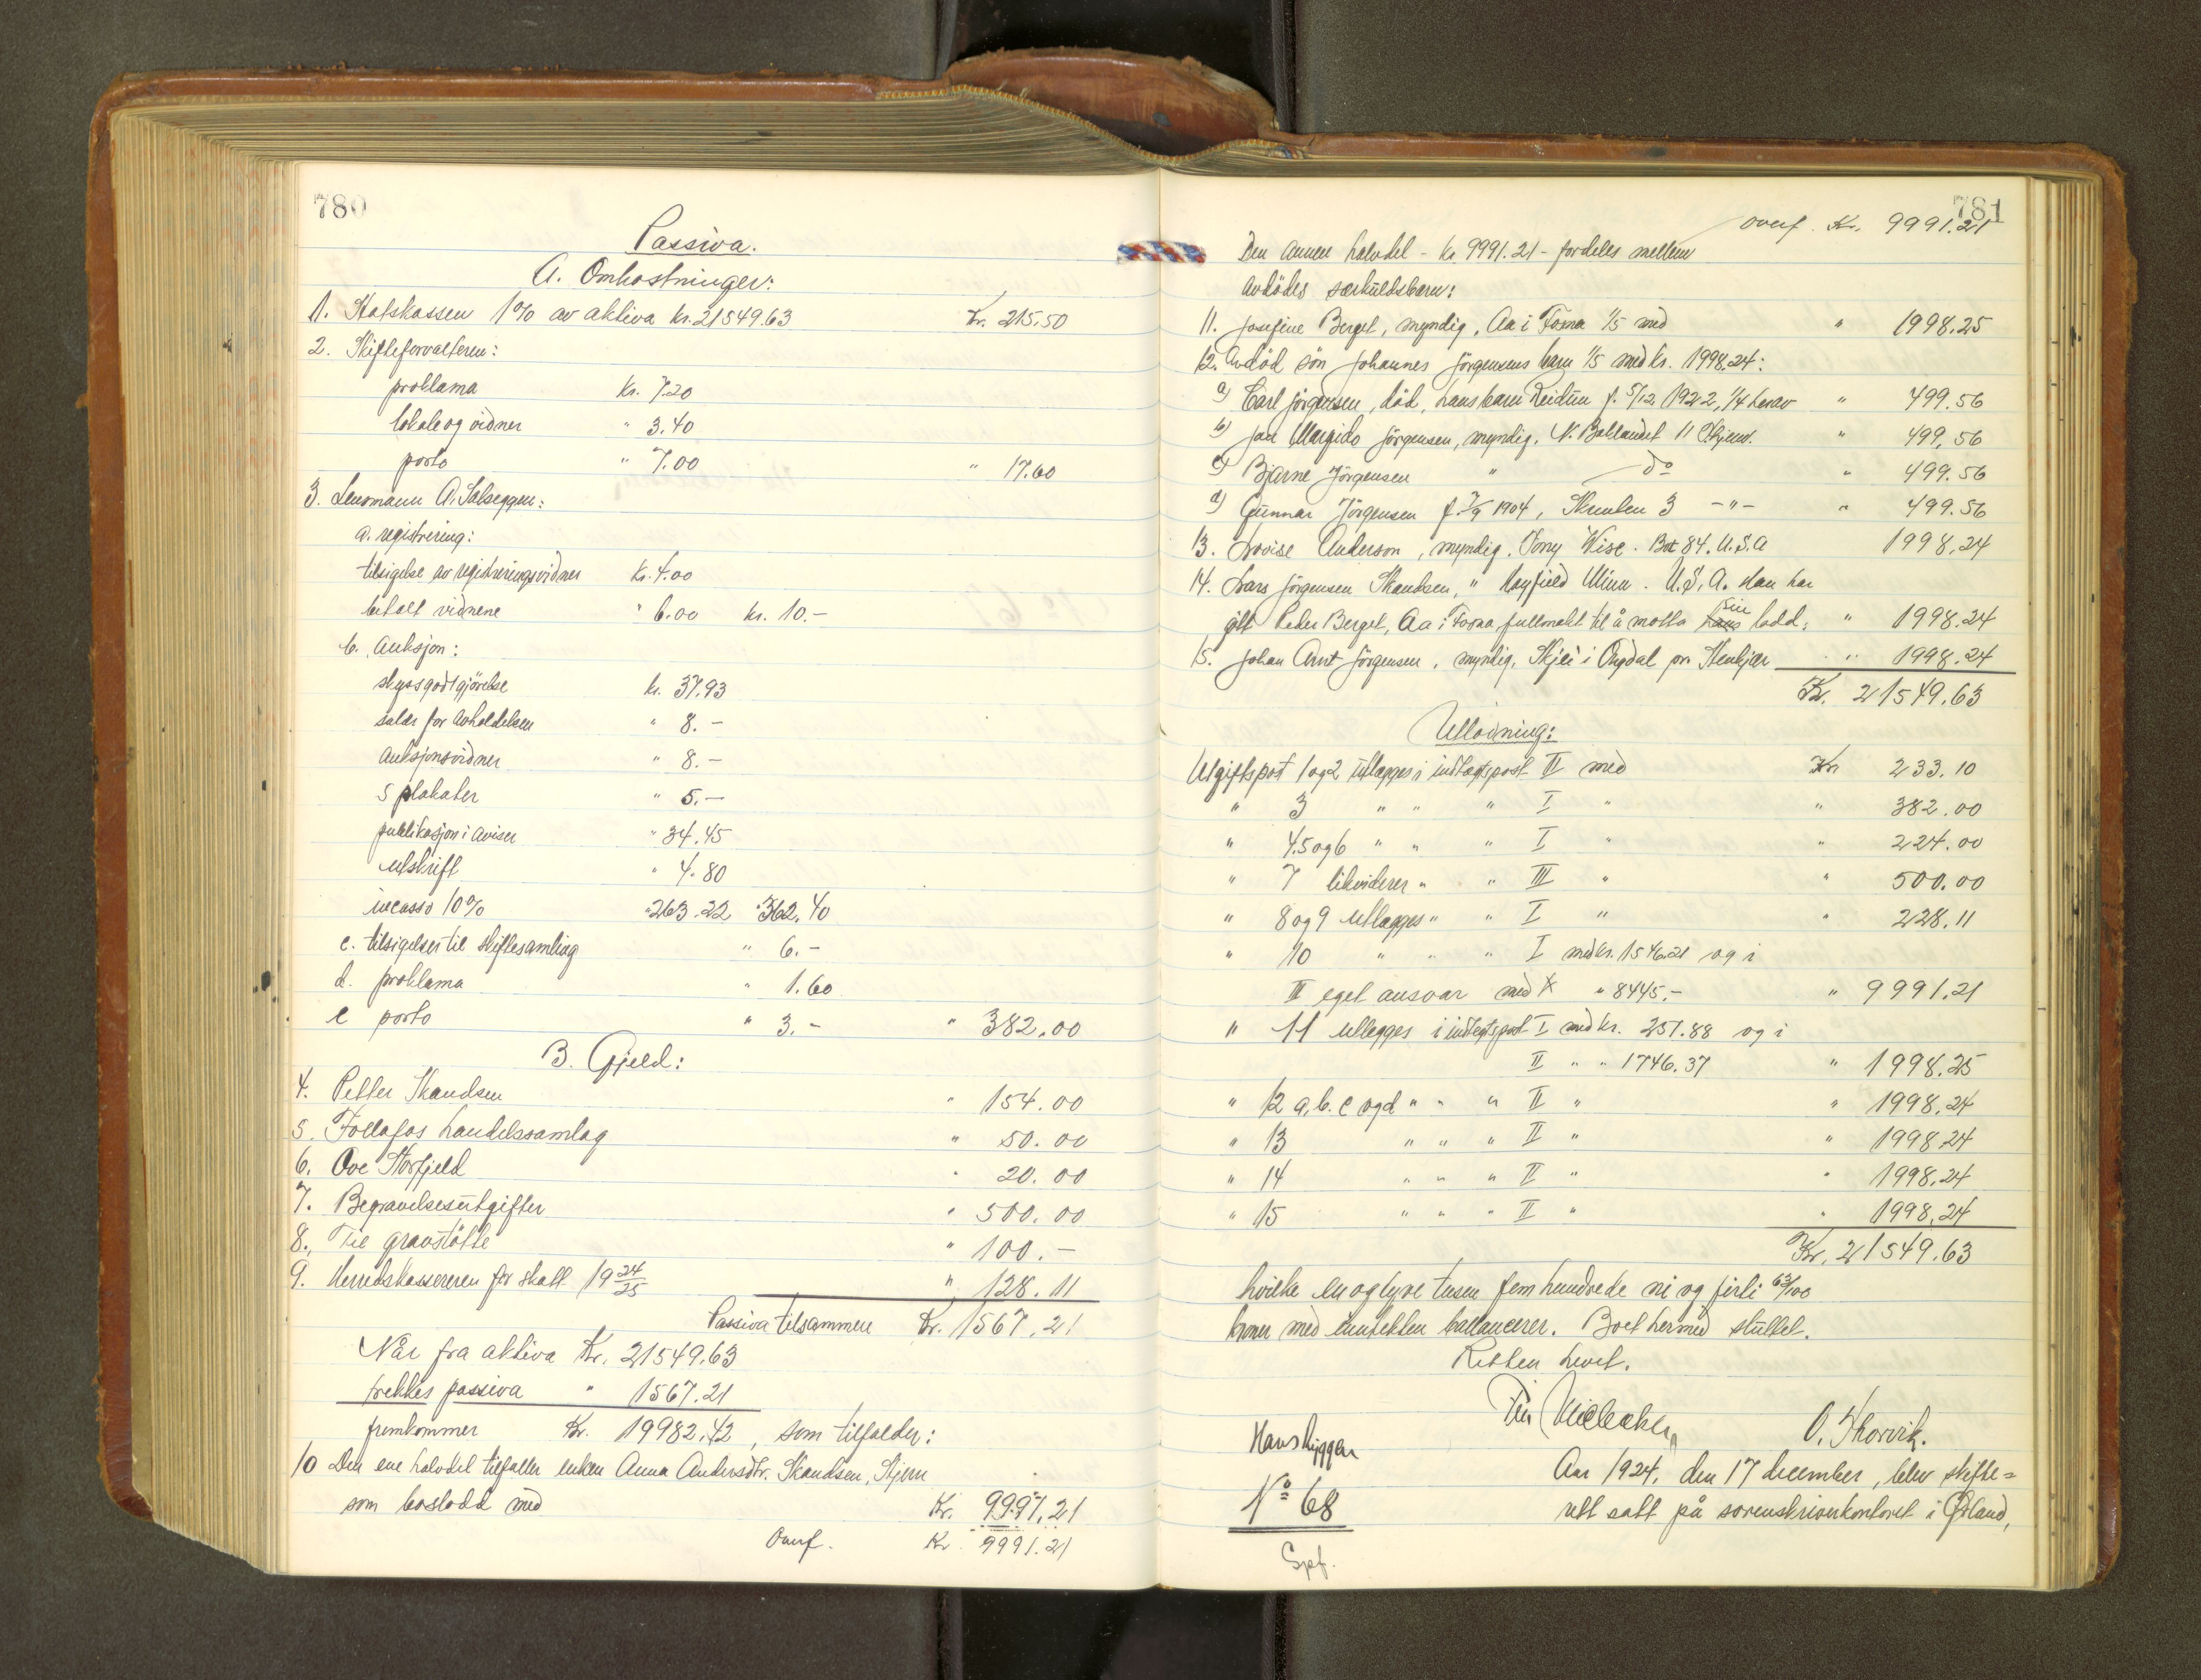 780
Passiva.
A. Omkostninger:
1. Statskassen 1% av aktiva kr. 21549.63 Kr. 215.50
2. Skifteforvalteren:
proklama Kr. 7.20
lokale og vidner " 3.40
porto " 7.00 " 17.60
3. Lensmann A. Salseggen:
a. registrering:
tilsigelse av registreringsvidner Kr. 4.00
betalt vidnene " 6.00 kr. 10.-
b. Auksjon:
skyssgodtgjörelse kr. 37.93
salær for avholdelsen " 8.-
auksjonsvidner " 8.-
5 plakater " 5.-
publikasjon i aviser " 34.45
utskrift " 4.80
incasso 10% " 263.22 " 362.40
c. tilsigelser til skiftesamling " 6.-
d. proklama " 1.60
e porto " 3.- " 382.00
B. Gjeld:
4. Petter Skandsen " 154.00
5. Follafos handelssamlag " 50.00
6. Ove Storfjeld " 20.00
7. Begravelsesutgifter " 500.00
8. Til gravstötte " 100.-
9. Herredskassereren for skatt 1924/25 " 128.11
Passiva tilsammen Kr. 1567.21
Når fra aktiva Kr. 21549.63
trekkes passiva " 1567.21
fremkommer Kr. 19982.42, som tilfalder:
10 Den ene halvdel tilfaller enken Anna Andersdtr. Skandsen, Stjern
som boslodd med Kr. 9991.21
Overf. Kr. 9991.21
781
overf. Kr. 9991.21
Den annen halvdel - kr. 9991.21 - fordeles mellem
avdödes særkuldsbarn:
11. Josefine Berget, myndig, Aa i Fosna 1/5 med " 1998.25
12. Avdöd sön Johannes Jörgensens barn 1/5 med kr. 1998.24:
a) Carl Jörgensen, död, hans barn Reidun f. 5/12 1922, 1/4 herav " 499.56
b) Jon Margido Jörgensen, myndig, N. Baklandet 11 Trhjem. " 499.56
c) Bjarne Jörgensen " do " 499.56
d) Gunnar Jörgensen f. 7/9 1904, 3 -"- " 499.56
13. Lovise Anderson, myndig, Tony Wisc. Box 84. U.S.A 1998.24
14. Lars Jörgensen Skandsen, " Hayfield Minn. U.S.A. Han har
gitt Peder Berget, Aa i Fosna fullmakt til å motta hans sin lodd: " 1998.24
15. Johan Arnt Jörgensen, myndig, Skjei i Ongdal pr. Stenkjær " 1998.24
Kr. 21549.63
Utlodning:
Utgiftspost 1 og 2 utlægges i indtægtspost II med Kr 233.10
" 3 " " " I " " 382.00
" 4.5 og 6 " " " I " " 224.00
" 7 likviderer " " III " " 500.00
" 8 og 9 utlægges " " I " " 228.11
" 10 " " " I med kr. 1546.21 og i
III eget ansvar med kr " 8445.- " 9991.21
" 11 utlegges i indtegtspost I med kr. 251.88 og i
II " " 1746.37 " 1998.25
" 12 a, b. c og d " " " II " " 1998.24
" 13 " " " II " " 1998.24
" 14 " " " II " " 1998.24
" 15 " " " II " " 1998.24
Kr. 21549.63
hvilke en og tyve tusen fem hundrede ni og firti 63/100
kroner med inntekten ballancerer. Boet hermed sluttet.
Retten hevet.
O. Storvik.
Hans Lyggen
No 68
Spf.
Aar 1924, den 17 december, blev skifte=
rett satt på sorenskriverkontoret i Ørland,